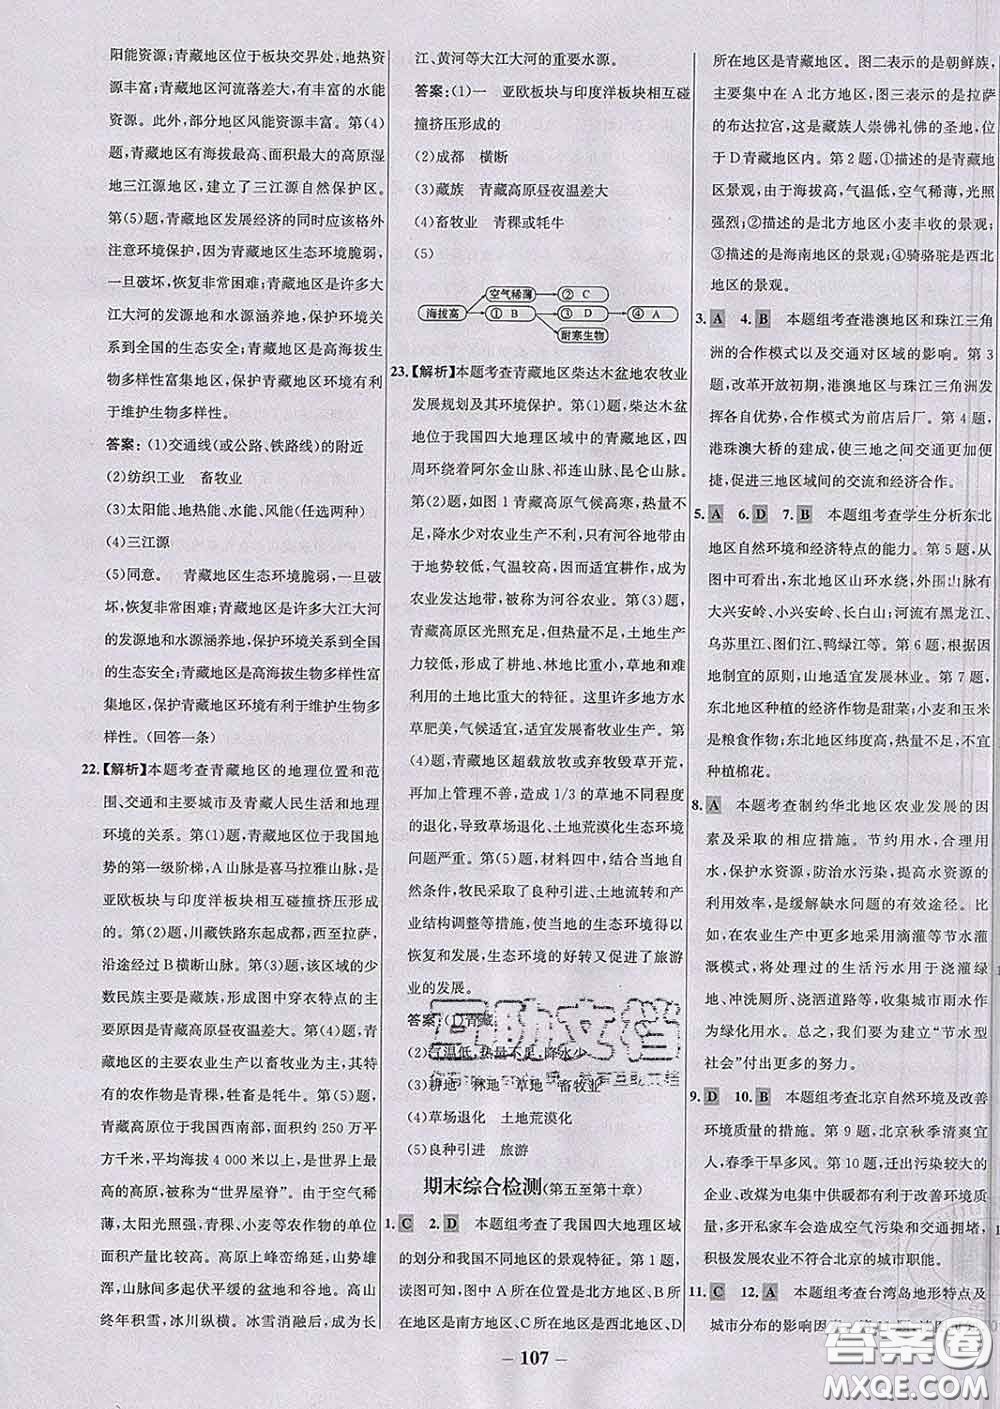 阳能资源;青藏地区位于板块交界处,地热能
丰富;青藏地区河流落差大,有丰富的水能
资源。此外,部分地区风能资源丰富。第(4)
题,青藏地区有海拔最高、面积最大的高原湿
地三江源地区,建立了三江源自然保护区。
第(5)题,青藏地区发展经济的同时应该格外
注意环境保护,因为青藏地区生态环境脆弱,
一旦破坏,恢复非常困难;青藏地区是许多大
江大河的发源地和水源涵养地,保护环境关
系到全国的生态安全;青藏地区是高海拔生
物多样性富集地区,保护青藏地区环境有利
于维护生物多样性。
答案:(1)交通线(或公路、铁路线)的附近
(2)纺织工业 畜牧业
(3)太阳能、地热能、水能、风能(任选两种)
(4)三江源
(5)同意。 青藏地区生态环境脆弱,一旦破
坏,恢复非常困难;青藏地区是许多大江大河
的发源地和水源涵养地,保护环境关系到全国
的生态安全;青藏地区是高海拔生物多样性富
集地区,保护青藏地区环境有利于维护生物多
样性。(回答一条)
22.【解析】本题考查青藏地区的地理位置和范
围、交通和主要城市及青藏人民生活和地理
环境的关系。第(1)题,青藏地区位于我国地
势的第一级阶梯,A山脉是喜马拉雅山脉,是
亚欧板块与印度洋板块相互碰撞挤压形成
的。第(2)题,川藏铁路东起成都,西至拉萨,
沿途经过B横断山脉。第(3)题,该区域的少
数民族主要是藏族,形成图中穿衣特点的主
要原因是青藏高原昼夜温差大。第(4)题,青
藏地区的主要农业生产以畜牧业为主,其特
有的农作物是青稞,牲畜是牦牛。第(5)题,
青藏高原位于我国西南部,面积约250万平
方千米,平均海拔4 000米以上,是世界最高
的高原,被称为“世界屋脊”。由于空气稀
薄,太阳光照强烈,青稞、小麦等农作物的单位
面积产量比较高。高原上峰峦绵延,山势雄
浑,山脉间多起伏平缓的盆地和谷地。高山
终年积雪,冰川纵横。冰雪消融后,成为长
江、黄河等大江大河的重要水源。
答案:(1)一 亚欧板块与印度洋板块相互碰
撞挤压形成的
(2)成都 横断
(3)藏族 青藏高原昼夜温差大
(4)畜牧业 青稞或牦牛
(5)
海拔高 空气稀薄 ② C
① B ③ D ④ A
耐寒生物
23.【解析】本题考查青藏地区柴达木盆地农牧业
发展规划及其环境保护。第(1)题,柴达木盆
地位于我国四大地理区域中的青藏地区,四
周环绕着阿尔金山脉、祁连山脉、昆仑山脉。
第(2)题,如图1青藏高原气候高寒,热量不
足,降水少对农业生产不利,只有河谷地带由
于地势较低,气温较高,适宜耕作,成为
农业发达地带,被称为河谷农业。第(3)题,
青藏高原区光照充足,但热量不足,土地生产
力较低,形成了耕地、林地比重小,草地和难
利用的土地比重大的特征。这里许多地方水
草肥美,气候适宜,适宜发展畜牧业生产。第
(4)题,青藏地区超载放牧或弃牧毁草开荒,
再加上管理不善,造成1/3的草场不同程度
的退化,导致草场退化、土地荒漠化生态环境
问题严重。第(5)题,材料四中,结合当地自
然条件,牧民采取了良种引进、土地流转和产
业结构调整等措施,使当地的生态环境得以
恢复和发展,生态环境的好转又促进了旅游
业的发展。
答案:(1)青藏
(2)气温低,热量不足,降水少
(3)耕地 林地 草地 畜牧业
(4)草场退化 土地荒漠化
(5)良种引进 旅游
期末综合检测(第五至第十章)
1. C 2. D 本题组考查了我国四大地理区域
的划分和我国不同地区的景观特征。第1题,
读图可知,图中A所在的位置是北方地区、B所
在地区是南方地区、C所在地区是西北地区、D
所在地区是青藏地区。图二表示的是朝鲜族,
主要集中在A北方地区;图三表示的是拉萨
的布达拉宫,这是藏族人崇佛礼佛的圣地,位
于D青藏地区内。第2题,①描述的是青藏地
区景观,由于海拔高,气温低,空气稀薄,光照
强烈;②描述的是北方地区小麦丰收的景观;
③描述的是海南地区的景观;④骑骆驼是西北
地区的景观。
3. A 4. B 本题组考查港澳地区和珠江三角
洲的合作模式以及交通对区域的影响。第3
题,改革开放初期,港澳地区与珠江三角洲发
挥各自优势,合作模式为前店后厂。第4题,
港珠澳大桥的建成,使三地之间交通更加便
捷,促进三地区域间的交流和经济合作。
5. A 6. D 7. B 本题组考查学生分析东北
地区自然环境和经济特点的能力。第5题,从
图中可看出,东北地区山环水绕,外围山脉有
大兴安岭、小兴安岭、长白山;河流有黑龙江、
乌苏里江、图们江、鸭绿江等。第6题,根据因
地制宜的原则,山地适宜发展林业。第7题,
东北地区种植的经济作物是甜菜;小麦和玉米
是粮食作物;东北地区纬度高,热量不足,不适宜
种植棉花。
8. A 本题组考查制约华北地区农业发展的因
素及采取的相应措施。节约用水,合理用水,
保护水资源,防治水污染,提高水资源
的利用效率,是缓解缺水问题的有效途径。比
如,在农业生产中更多地采用滴灌等节水灌
溉模式,将处理过的生活污水用于浇灌绿
地、冲洗厕所、浇洒道路等,收集城市雨水作
为绿化用水。总之,我们要为建立“节水型
社会”付出更多的努力。
9. D 10. B 本题组考查北京自然环境及改善
环境质量的措施。第9题,北京秋季清爽宜人,
适宜赏红叶。第10题,迁出污染较大的企
业、改煤为电集中供暖都有利于改善环境质量;
多开私家车会造成空气污染和交通拥堵,
积极发展农业不符合北京的城市职能。
11. C 12. A 本题组考查台湾岛地形特点及
城市分布的影响因素。
— 107 —
互助文档
答案圈
MXQE.COM